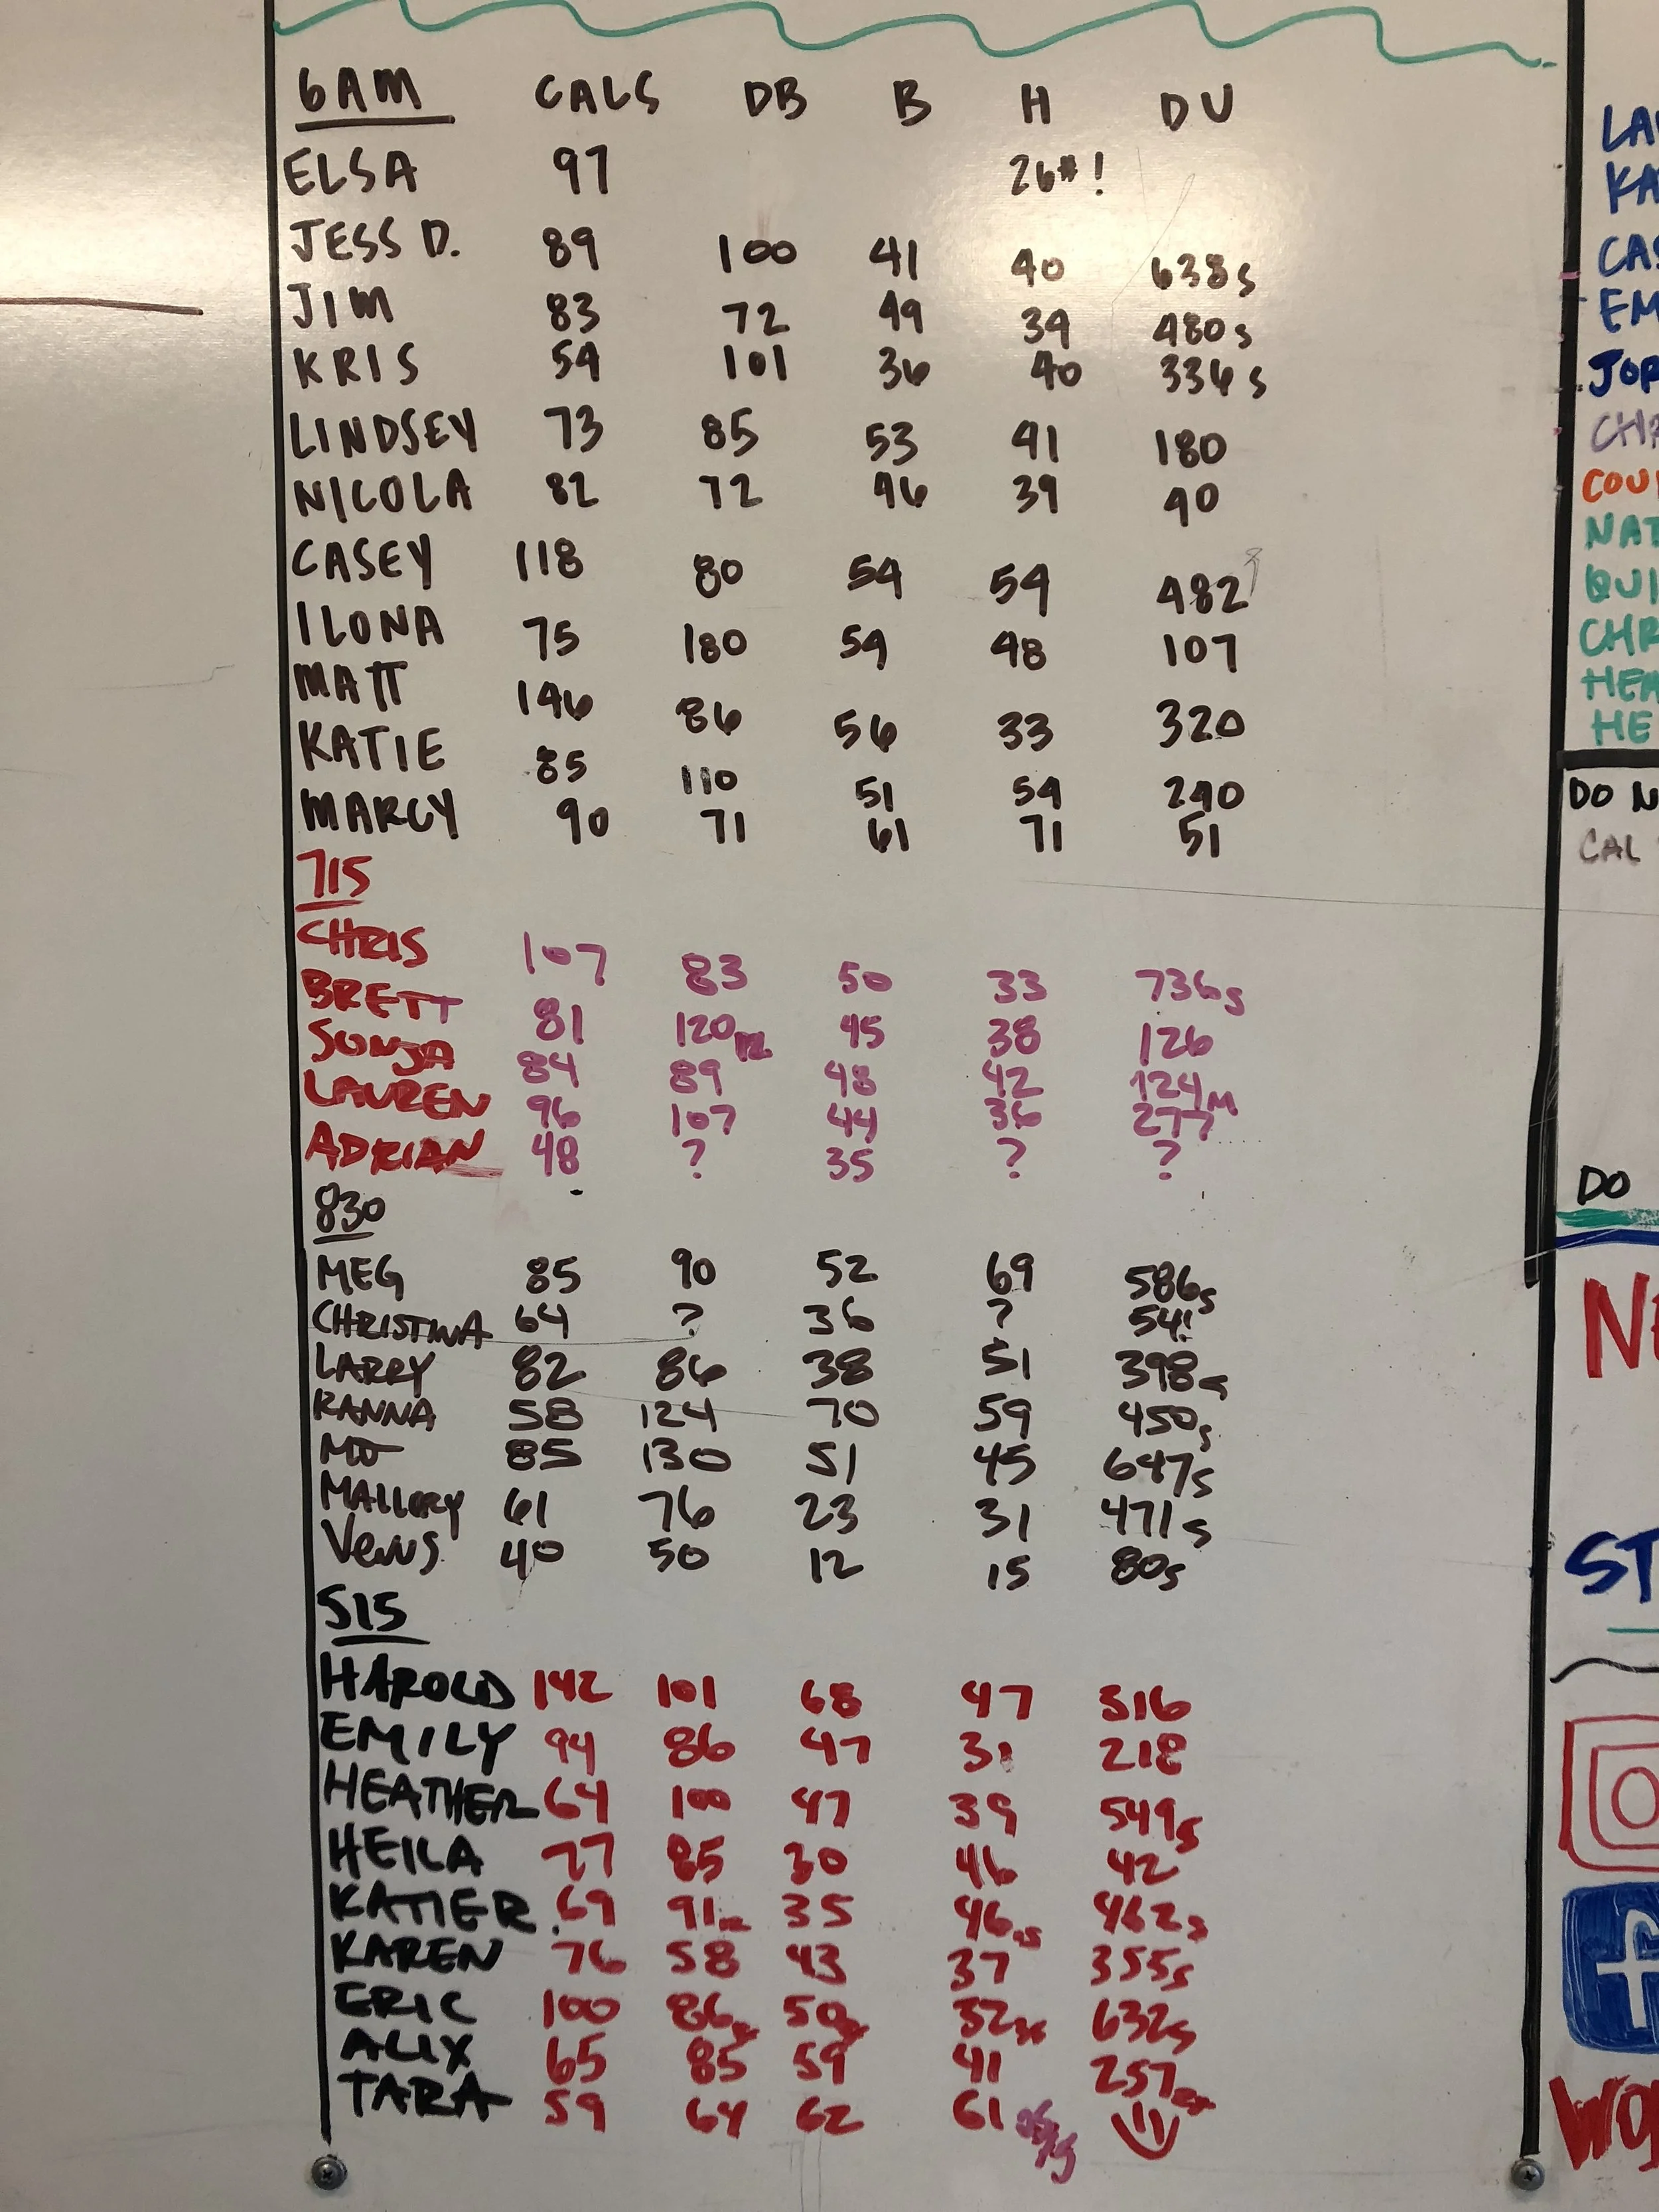 6AM CALS DB B H DU
ELSA 97 26#!
JESS D. 89 100 41 40 638s
JIM 83 72 49 39 480s
KRIS 54 101 36 40 336s
LINDSEY 73 85 53 41 180
NICOLA 82 72 46 39 90
CASEY 118 80 54 54 482
ILONA 75 180 54 48 107
MATT 146 86 56 33 320
KATIE 85 110 51 54 240
MARCY 90 71 61 71 51
715
CHRIS 107 83 50 33 736s
BRETT 81 120 45 38 126
SONJA 84 89 48 42 124M
LAUREN 96 107 44 36 277
ADRIAN 48 ? 35 ? ?
830
MEG 85 90 52 69 586s
CHRISTINA 64 ? 36 ? 54!
LARRY 82 86 38 51 398s
RANNA 58 124 70 59 450s
MO 85 130 51 45 647s
MALLORY 61 76 23 31 471s
VENUS 40 50 12 15 80s
515
HAROLD 142 101 68 47 316
EMILY 94 86 47 31 218
HEATHER 64 100 47 39 549s
HEILA 77 85 30 46 42
KATIE R. 69 91 35 46 462s
KAREN 76 58 43 37 355s
ERIC 100 86 50 32 632s
ALIX 65 85 59 41 257
TARA 59 64 62 61
LAU
KA
CAS
EM
JOR
CHR
COU
NAT
QUI
CHR
HEA
HE
DO N
CAL
DO
NE
ST
f
WO